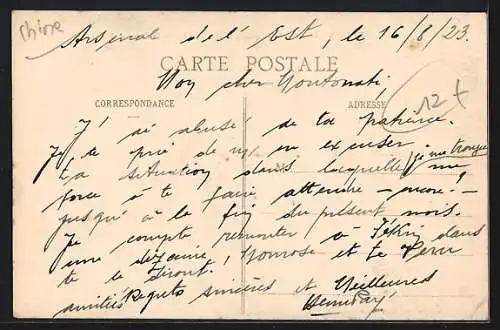 Chine
Arsenal de l'Est, le 16/8/23.
CARTE POSTALE
Mon cher
CORRESPONDANCE
ADRESSE
12 f
J'ai abusé de ta patience.
Je te prie de m'en excuser.
La situation dans laquelle je me trouve
me
force à te faire attendre - encore! -
jusqu'à la fin du présent mois.
Je compte remonter à Pékin dans
une dizaine et te
te le diront.
amitiés Regrets sincères et Meilleures